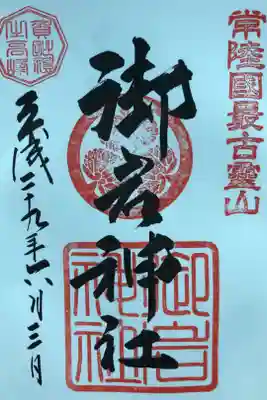 常陸國最古靈山
御岩神社
御岩神社
賀毗禮之高峰
平成二十九年六月三日